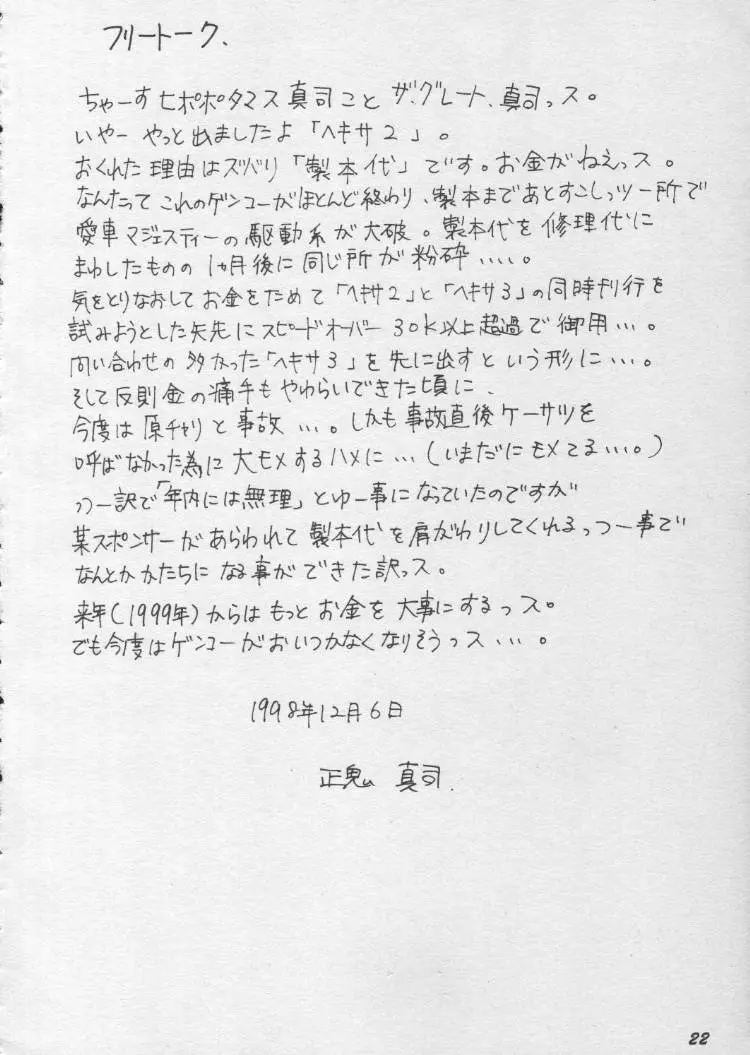 フリートーク.
ちゃーすヒポポタマス真司こと ザ.グレート、真司っス。
いやー やっと出ましたよ「ヘキサ2」。
おくれた理由はズバリ「製本代」です。お金がねえっス。
なんたって これのゲンコーがほとんど終わり、製本まであとすこしっツー所で
愛車マジェスティーの駆動系が大破。製本代を修理代に
まわしたものの 1ヵ月後に同じ所が粉砕....。
気をとりなおしてお金をためて「ヘキサ2」と「ヘキサ3」の同時刊行を
試みようとした矢先にスピードオーバー 30k以上超過で御用...。
問い合わせの多かった「ヘキサ3」を先に出すという形に...。
そして反則金の痛手もやわらいできた頃に、
今度は原チャリと事故...。しかも事故直後ケーサツを
呼ばなかった為に大モメするハメに...(いまだにモメてる...。)
っつー訳で「年内には無理」とゆー事になっていたのですが
某スポンサーがあらわれて製本代を肩がわりしてくれるっつー事で
なんとかかたちになる事ができた訳っス。
来年(1999年)からはもっとお金を大事にするっス。
でも今度はゲンコーがおいつかなくなりそうっス...。
1998年12月6日
正鬼 真司.
22